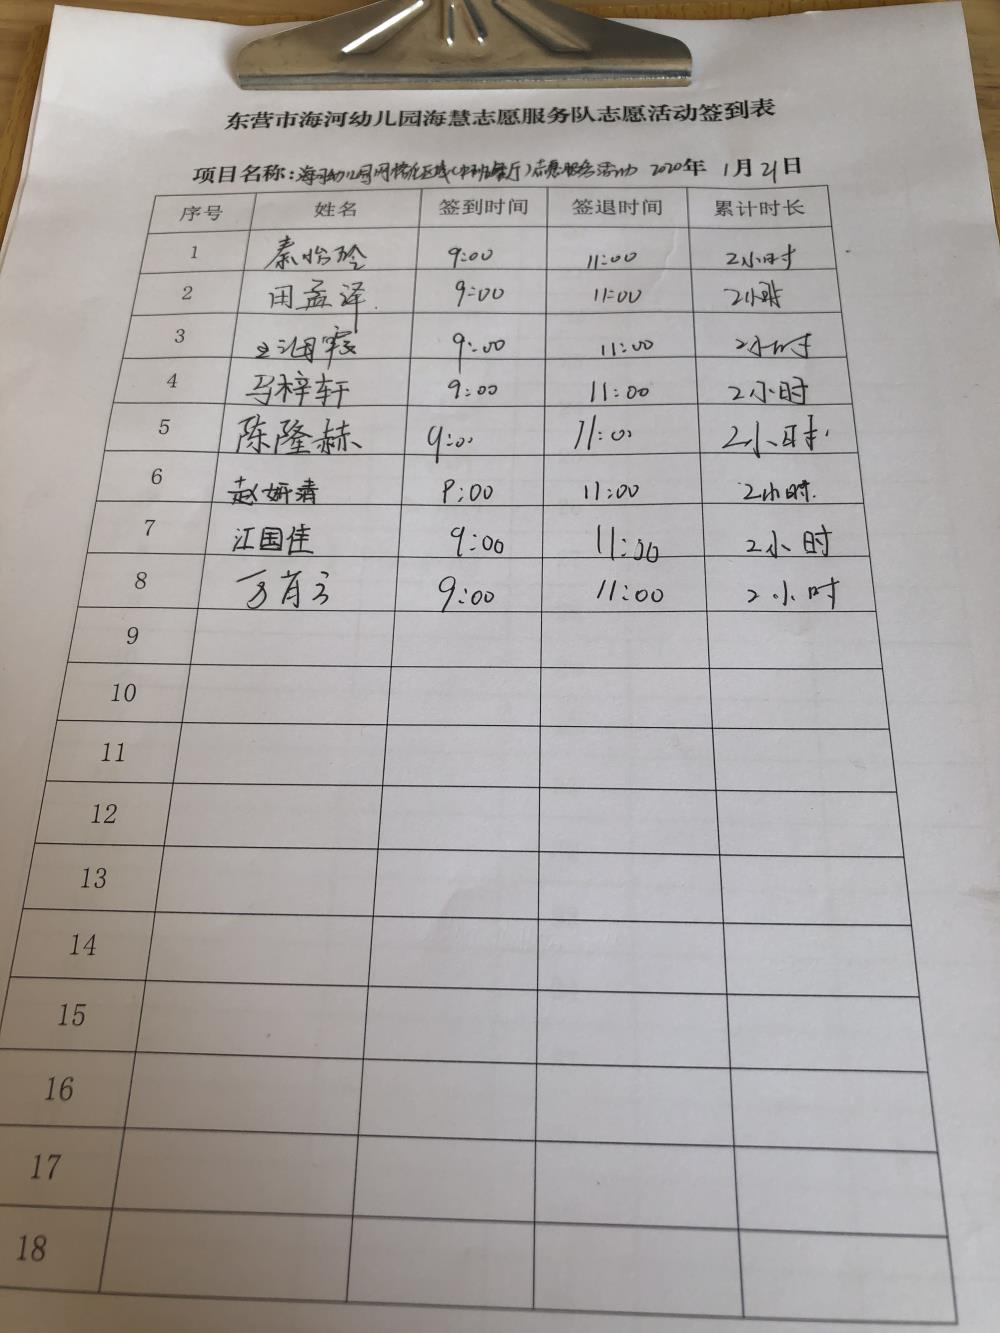 东营市海河幼儿园海慧志愿服务队志愿活动签到表
项目名称:海河幼儿园网格化区域(中班餐厅)志愿服务活动 2020年 1月21日
序号 姓名 签到时间 签退时间 累计时长
1 秦怡玲 9:00 11:00 2小时
2 田孟泽 9:00 11:00 2小时
3 9:00 11:00 2小时
4 马梓轩 9:00 11:00 2小时
5 陈隆赫 9:00 11:00 2小时
6 赵妍清 9:00 11:00 2小时
7 江国佳 9:00 11:00 2小时
8 9:00 11:00 2小时
9
10
11
12
13
14
15
16
17
18